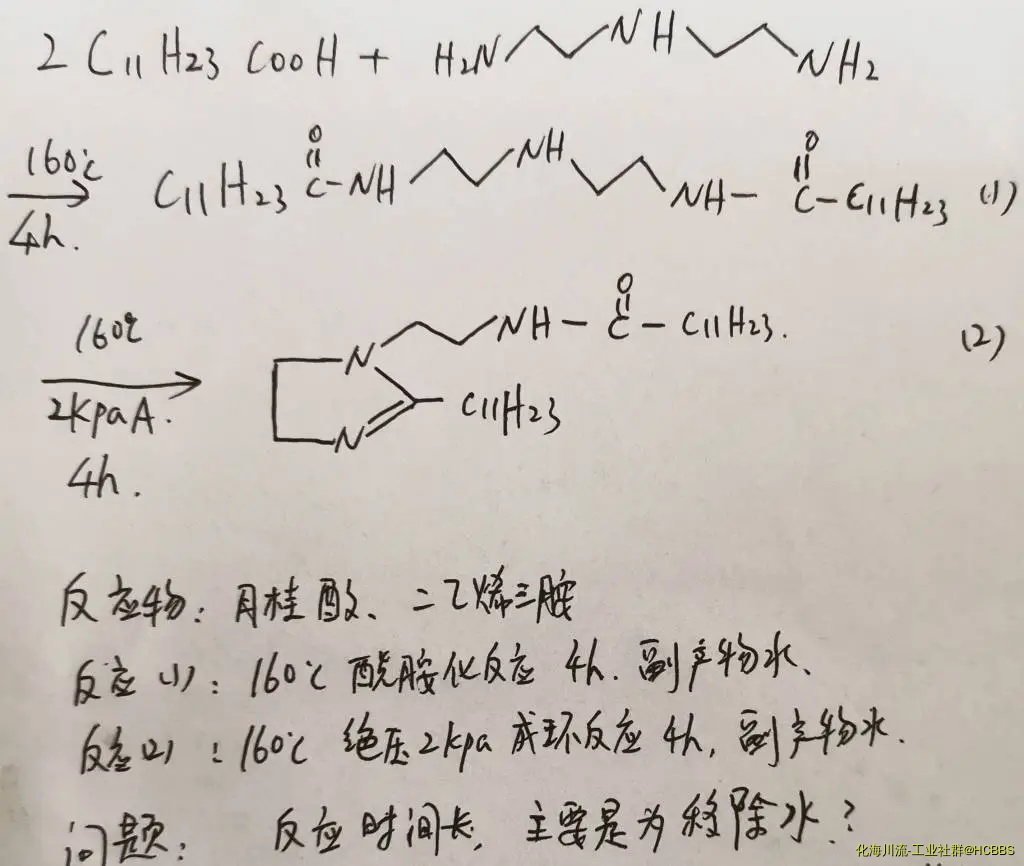 2 C11H23COOH + H2N NH NH2
160℃ 4h. C11H23 O C-NH NH NH- O C-C11H23 (1)
160℃ 2kpaA. 4h. N NH-C O -C11H23. (2)
N C11H23
反应物：月桂酸、二乙烯三胺
反应(1)：160℃ 酰胺化反应 4h. 副产物水、
反应(2)：160℃ 绝压2kpa 成环反应 4h, 副产物水.
问题： 反应时间长, 主要是为移除水？
化海川流-工业社群@HCBBS